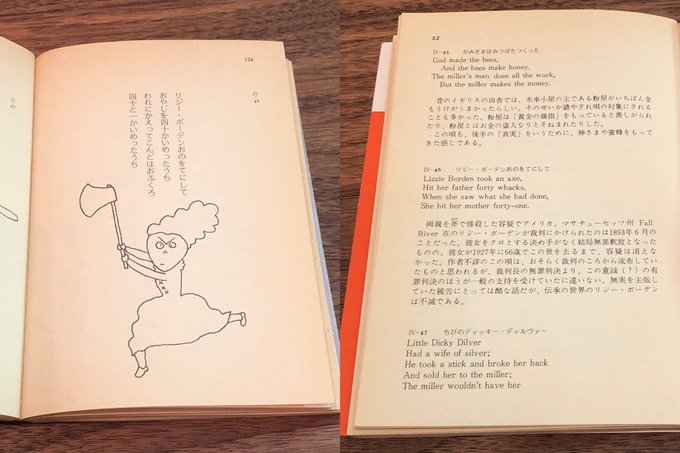 124
IV
46
リジー・ボーデンおのをてにして
おやじを四十かいめったうち
われにかえってこんどはおふくろ
四十と一かいめったうち
52
IV-45 かみさまはみつばちつくった
God made the bees,
And the bees make honey.
The miller's man does all the work,
But the miller makes the money.
昔のイギリスの田舎では、水車小屋の主である粉屋がいちばん金
もうけがうまかったらしい。そのせいか諺やざれ唄の対象にされる
ことも多かった。粉屋は「黄金の親指」をもっていると羨しがられ
たり、粉屋とはお金の盗人なりとそねまれたりした。
この唄も、後半の「真実」をいうために、神さまや蜜蜂をもって
きた感じである。
IV-46 リジー・ボーデンおのをてにして
Lizzie Borden took an axe,
Hit her father forty whacks,
When she saw what she had done,
She hit her mother forty-one.
両親を斧で惨殺した容疑でアメリカ、マサチューセッツ州 Fall
River 在のリジー・ボーデンが裁判にかけられたのは1893年6月の
ことだった。彼女をクロとする決め手がなく結局無罪釈放となった
ものの、彼女が1927年に66歳でこの世を去るまで、容疑は消えな
かった。作者不詳のこの唄は、おそらく裁判のころから流布してい
たものと思われるが、裁判長の無罪判決より、この童謡（？）の有
罪判決のほうが一般の支持を受けていたに違いない。無実を主張し
ていた被告にとっては酷な話だが、伝承の世界のリジー・ボーデン
は不滅である。
IV-47 ちびのディッキー・ディルヴァー
Little Dicky Dilver
Had a wife of silver;
He took a stick and broke her back
And sold her to the miller;
The miller wouldn't have her